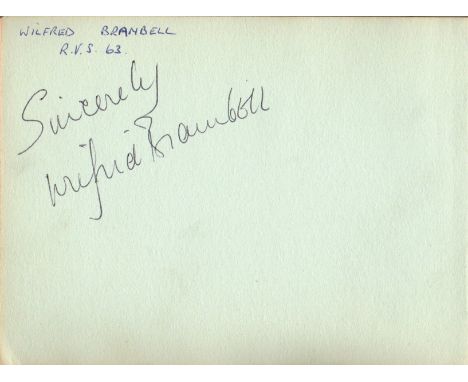 WILFRED BRAMBELL
R.V.S. 63.
Sincerely
Wilfrid Brambell